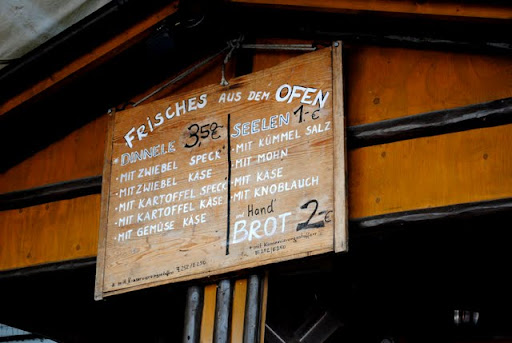 FRISCHES AUS DEM OFEN
DINNELE 3,50€
- MIT ZWIEBEL SPECK
- MIT ZWIEBEL KÄSE
- MIT KARTOFFEL SPECK
- MIT KARTOFFEL KÄSE
- MIT GEMÜSE KÄSE
SEELEN 1.-€
- MIT KÜMMEL SALZ
- MIT MOHN
- MIT KÄSE
- MIT KNOBLAUCH
"Hand"
BROT 2.-€